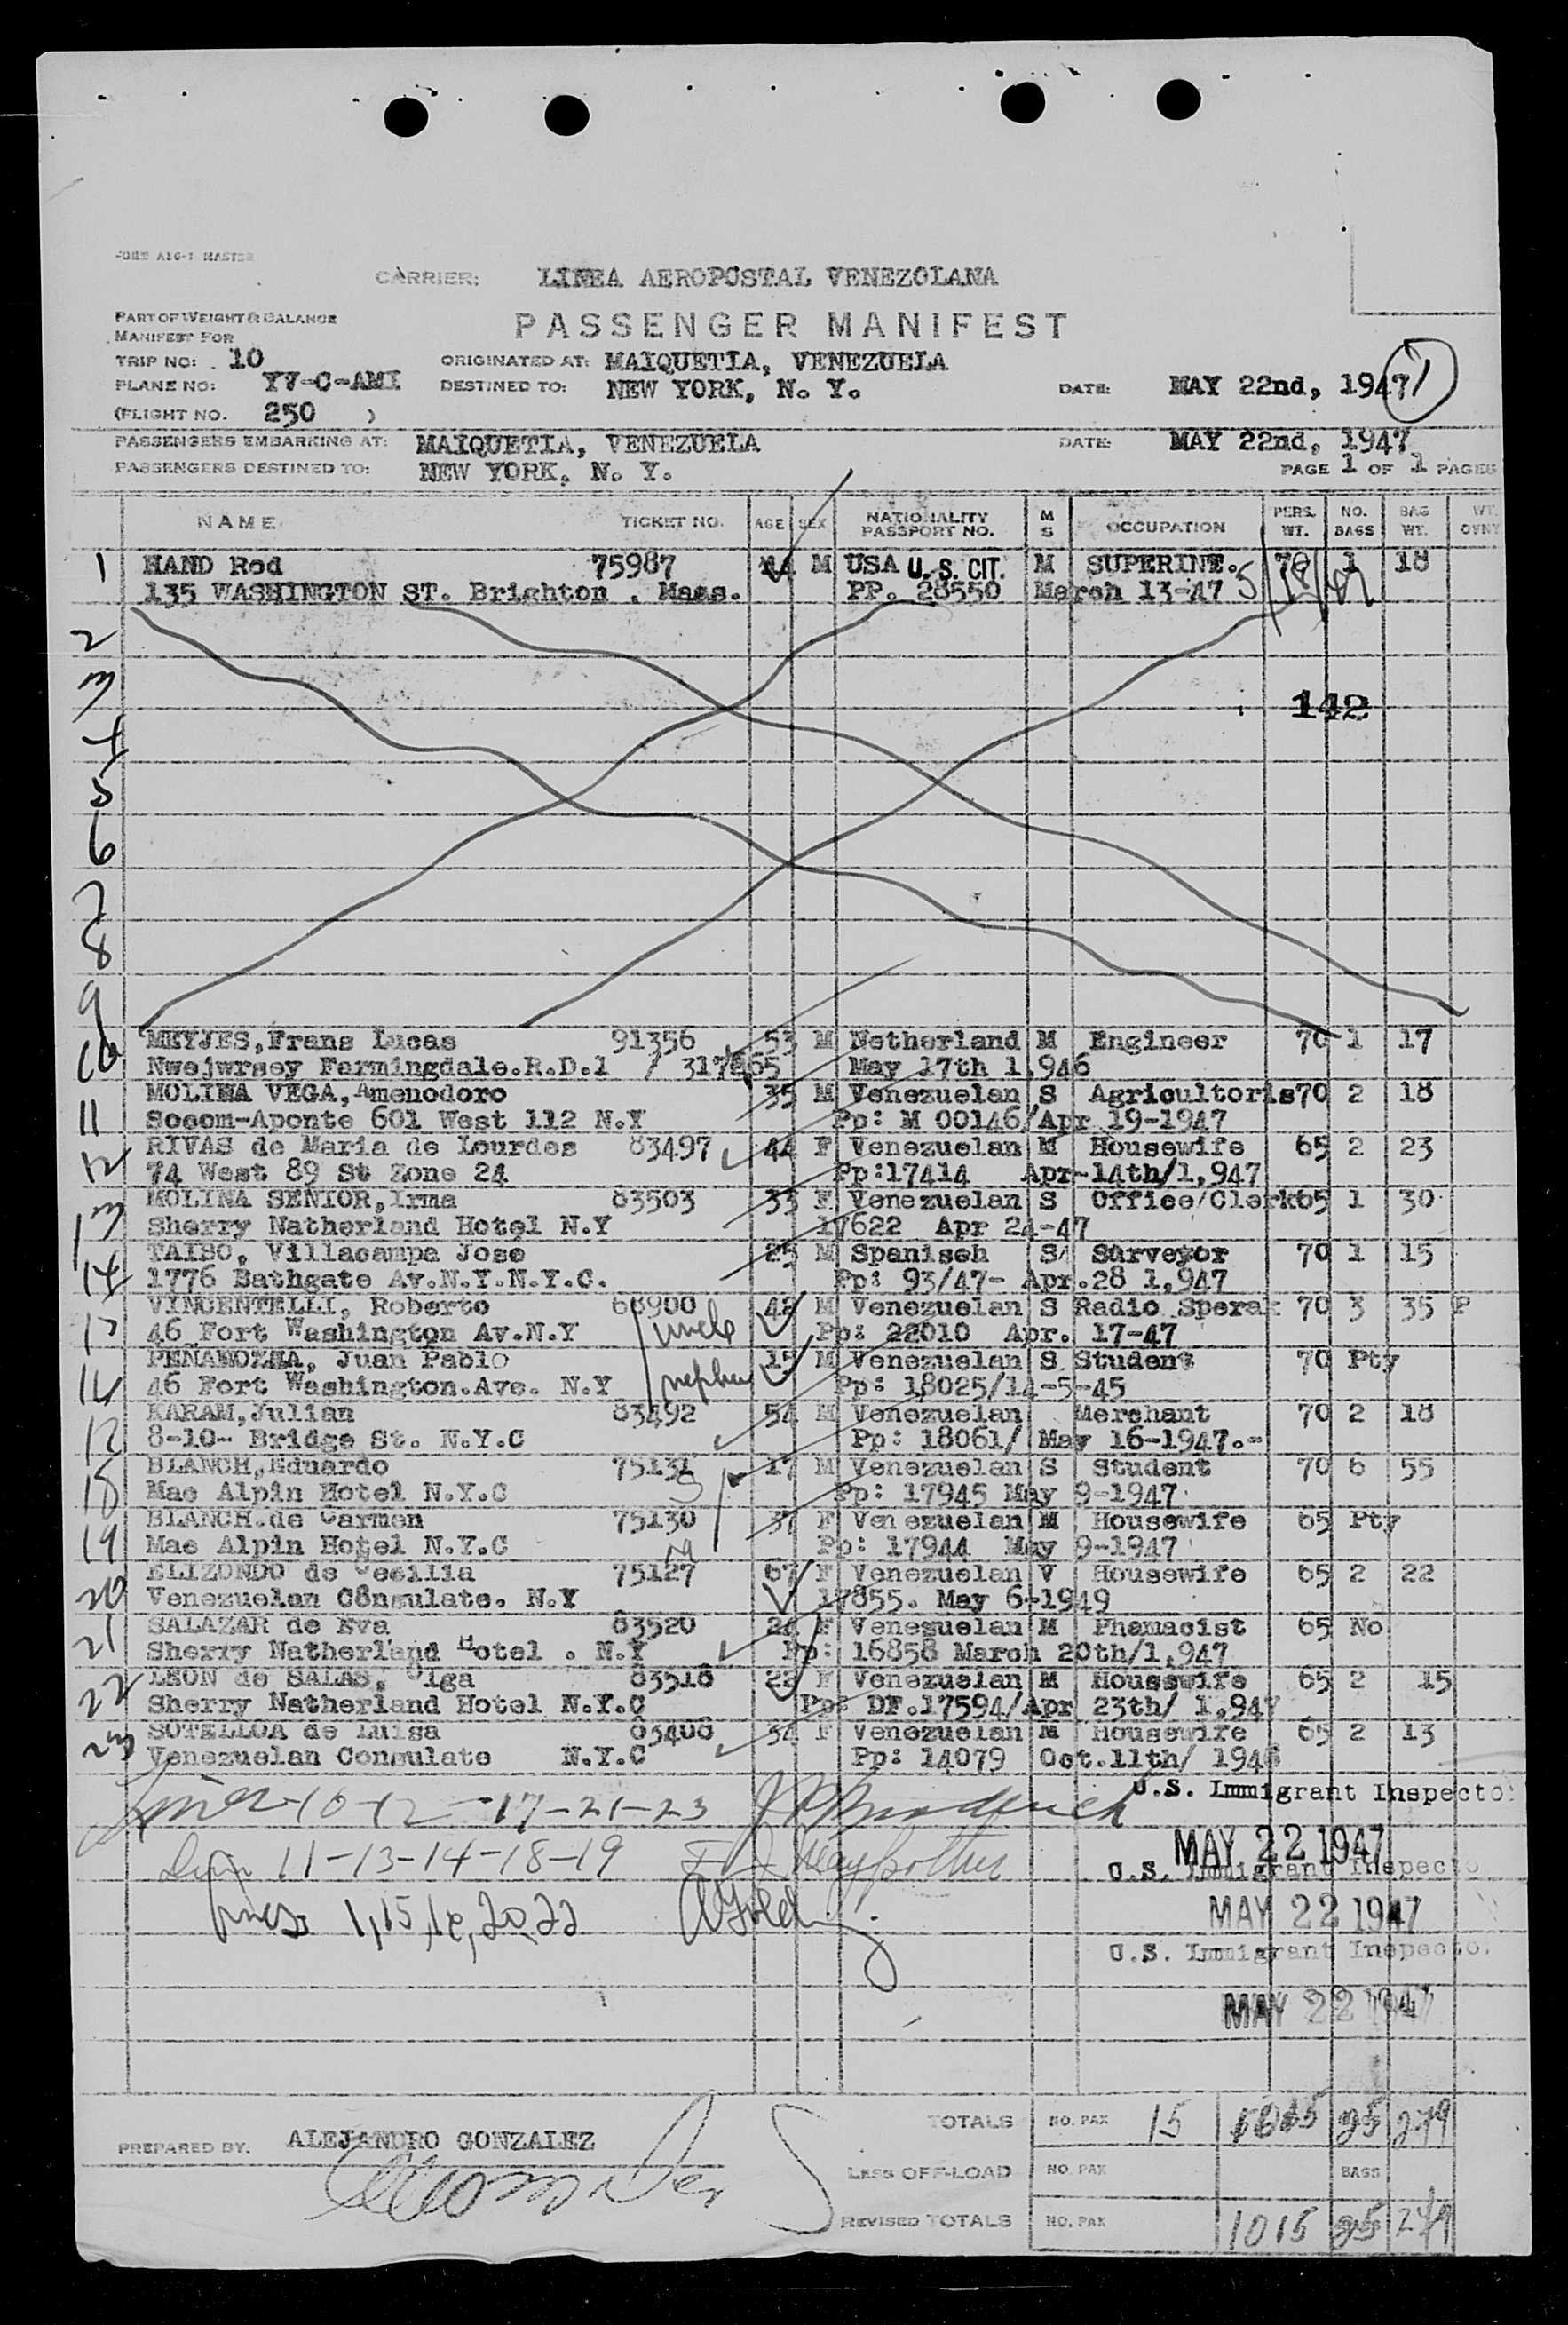 FORM AEC-1 MASTER
CARRIER: LINEA AEROPOSTAL VENEZOLANA
PART OF WEIGHT & BALANCE
MANIFEST FOR
PASSENGER MANIFEST
TRIP NO: 10 ORIGINATED AT: MAIQUETIA, VENEZUELA
PLANE NO: YV-C-AMI DESTINED TO: NEW YORK, N. Y. DATE: MAY 22nd, 1947 1
(FLIGHT NO. 250 )
PASSENGERS EMBARKING AT: MAIQUETIA, VENEZUELA DATE: MAY 22nd, 1947
PASSENGERS DESTINED TO: NEW YORK, N. Y. PAGE 1 OF 1 PAGES
NAME TICKET NO. AGE SEX NATIONALITY PASSPORT NO. M S OCCUPATION PERS. WT. NO. BAGS BAG WT. WT. OVNT
1 HAND Rod 75987 44 M USA U. S. CIT. M SUPERINT. 70 1 18
135 WASHINGTON ST. Brighton . Mass. PP. 28550 March 13-47
2
3
142
4
5
6
7
8
9
10 MEYJES,Frans Lucas 91356 53 M Netherland M Engineer 70 1 17
Nwejwrsey Farmingdale.R.D.1 / 317265 May 17th 1,946
11 MOLINA VEGA,Amenodoro 35 M Venezuelan S Agricultoris 70 2 18
Socom-Aponte 601 West 112 N.Y Pp: M 00146/Apr 19-1947
12 RIVAS de Maria de Lourdes 83497 44 F Venezuelan M Housewife 65 2 23
74 West 89 St Zone 24 Pp:17414 Apr-14th/1,947
13 MOLINA SENIOR,Irma 83503 33 F Venezuelan S Office/Clerk 65 1 30
Sherry Natherland Hotel N.Y 17622 Apr 24-47
14 TAIBO, Villacampa Jose 25 M Spaniseh S Surveyor 70 1 15
1776 Bathgate Av.N.Y.N.Y.C. Pp: 93/47- Apr.28 1,947
15 VINCENTELLI, Roberto 68900 uncle 42 M Venezuelan S Radio Sperat 70 3 35 P
46 Fort Washington Av.N.Y Pp: 22010 Apr. 17-47
16 PEÑANOZHA, Juan Pablo nephew 15 M Venezuelan S Student 70 Pty
46 Fort Washington.Ave. N.Y Pp: 18025/14-5-45
17 KARAM,Julian 83492 54 M Venezuelan Merchant 70 2 18
8-10- Bridge St. N.Y.C Pp: 18061/ May 16-1947.-
18 BLANCH,Eduardo 75131 17 M Venezuelan S Student 70 6 55
Mac Alpin Hotel N.Y.C S Pp: 17945 May 9-1947
19 BLANCH.de Carmen 75130 37 F Venezuelan M Housewife 65 Pty
Mac Alpin Hotel N.Y.C Pp: 17944 May 9-1947
20 ELIZONDO de Cecilia 75127 67 F Venezuelan V Housewife 65 2 22
Venezuelan Cônsulate. N.Y 17855. May 6-1949
21 SALAZAR de Eva 83520 24 F Venezuelan M Phamacist 65 No
Sherry Natherland Hotel . N.Y Pp: 16858 March 20th/1,947
22 LEON de SALAS, Olga 83518 22 F Venezuelan M Housewife 65 2 15
Sherry Natherland Hotel N.Y.C Pp: DF.17594/Apr 23th/ 1,947
23 SOTELLOA de Luisa 83408 54 F Venezuelan M Housewife 65 2 13
Venezuelan Consulate N.Y.C Pp: 14079 Oct.11th/ 1946
Lines 10-12-17-21-23 U.S. Immigrant Inspector
MAY 22 1947
Lines 11-13-14-18-19 U.S. Immigrant Inspecto
Lines 1,15,16,20,22 MAY 22 1947
U.S. Immigrant Inspecto.
MAY 22 1947
TOTALS NO. PAX 15 1015 25 279
PREPARED BY. ALEJANDRO GONZALEZ
LESS OFF-LOAD NO. PAX BAGS
REVISED TOTALS NO. PAX 1015 25 279